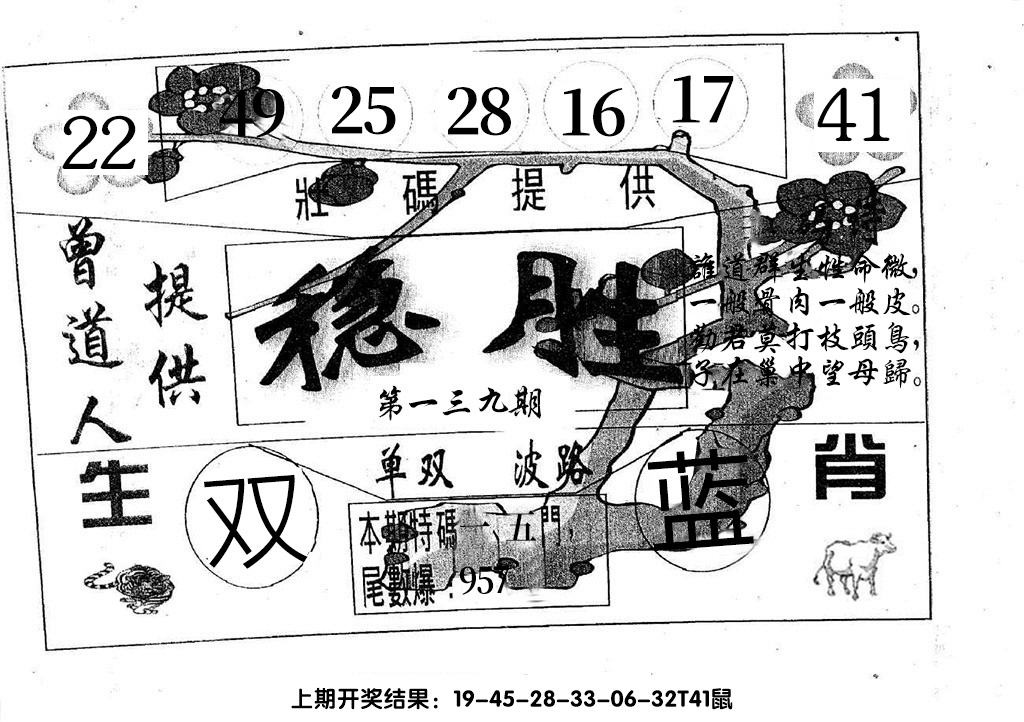 22 49 25 28 16 17 41
壯碼提供
曾道人
提供
稳胜
第一三九期
特
誰道群生性命微，
一般骨肉一般皮。
勸君莫打枝頭鳥，
子在巢中望母歸。
单双 波路
生肖
双
蓝
本期特碼一、五門，
尾數爆：957
上期开奖结果：19-45-28-33-06-32T41鼠